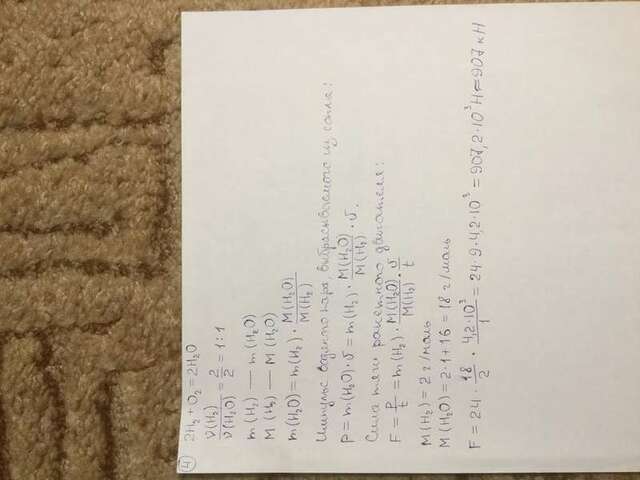 4 2H₂ + O₂ = 2H₂O
ν(H₂)/ν(H₂O) = 2/2 = 1:1
m(H₂) — m(H₂O)
M(H₂) — M(H₂O)
m(H₂O) = m(H₂) · M(H₂O)/M(H₂)
Импульс водяного пара, выбрасываемого из сопла:
p = m(H₂O)·υ = m(H₂) · M(H₂O)/M(H₂) · υ.
Сила тяги ракетного двигателя:
F = p/t = m(H₂) · M(H₂O)/M(H₂) · υ/t
M(H₂) = 2 г/моль
M(H₂O) = 2·1+16 = 18 г/моль
F = 24 · 18/2 · 4,2·10³/1 = 24·9·4,2·10³ = 907,2·10³ Н ≈ 907 кН